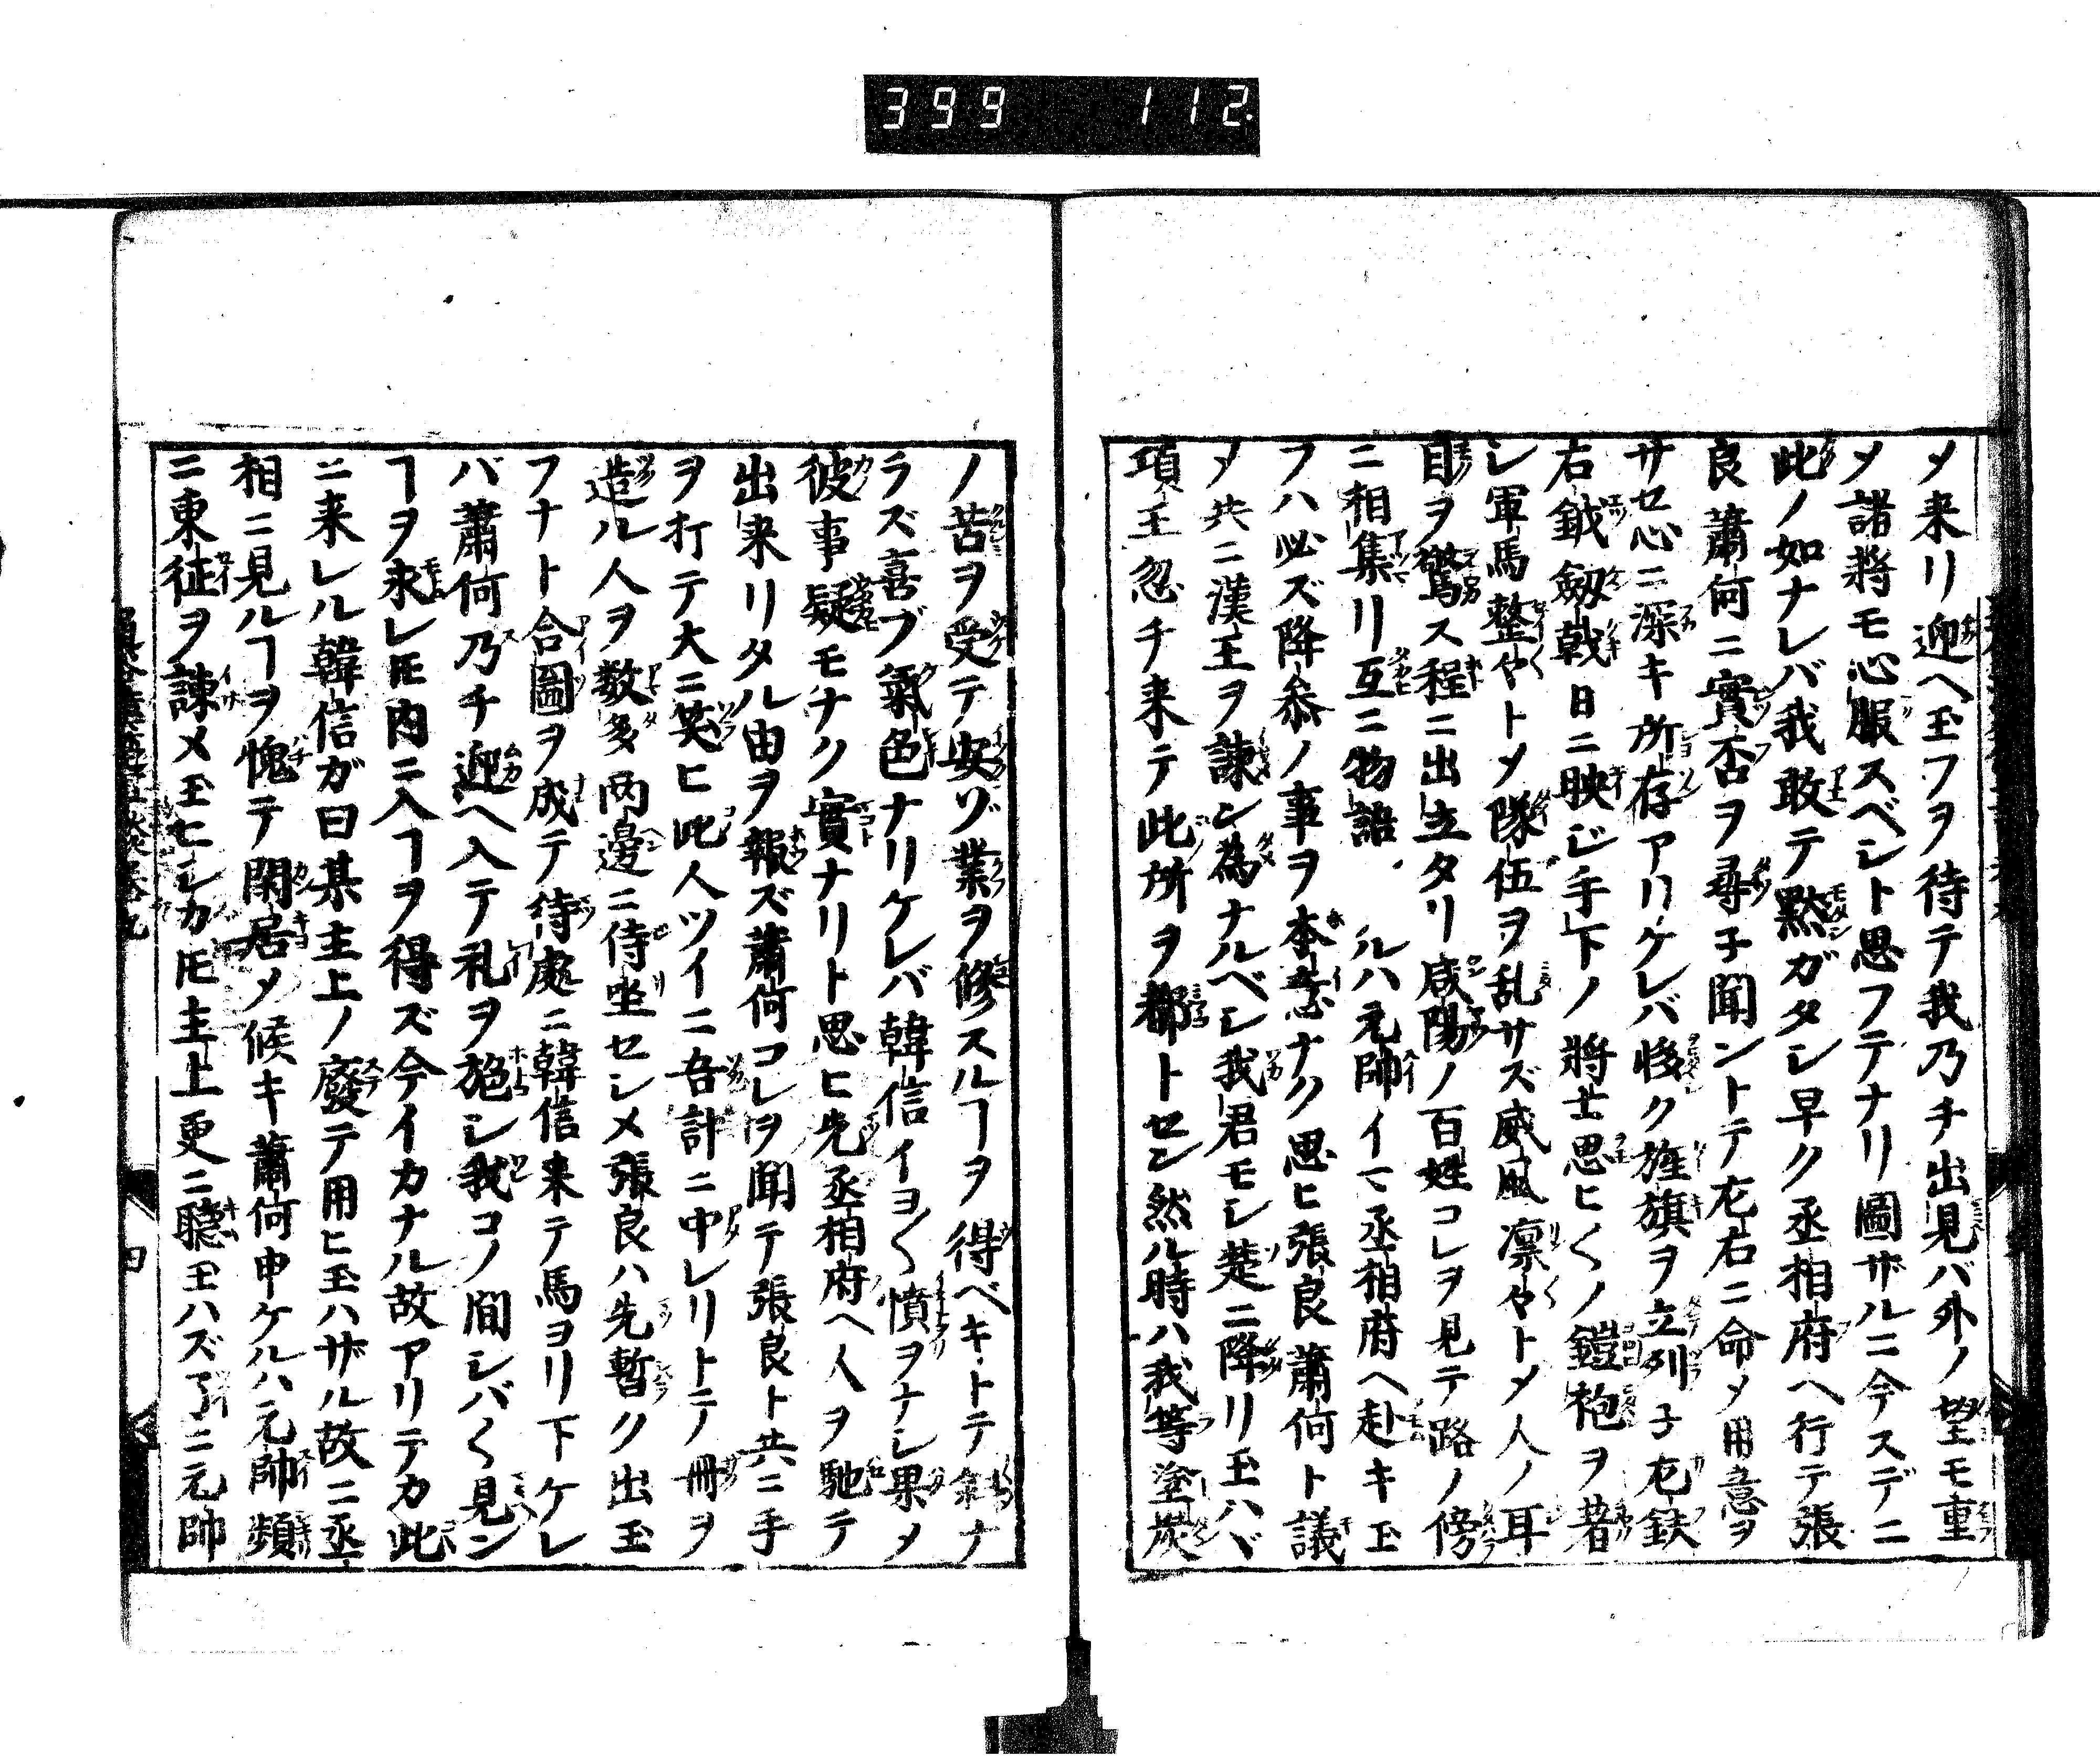 399 112.
メ来リ迎ヘ玉フヲ待テ我乃チ出見バ外ノ望モ重
メ諸將モ心服スベシト思フテナリ圖ザルニ今スデニ
此ノ如ナレバ我敢テ黙ガタシ早ク丞相府ヘ行テ張
良蕭何ニ實否ヲ尋子聞ントテ左右ニ命メ用意ヲ
サセ心ニ深キ所存アリケレバ態ク旌旗ヲ立列子左鈇
右鉞劔戟日ニ映ジ手下ノ將士思ヒ〱ノ鎧袍ヲ着
シ軍馬整々トメ隊伍ヲ乱サズ威風凛々トメ人ノ耳
目ヲ驚ス程ニ出立タリ咸陽ノ百姓コレヲ見テ路ノ傍
ニ相集リ互ニ物語 ルハ元帥イマ丞相府ヘ赴キ玉
フハ必ズ降参ノ事ヲ本意ナク思ヒ張良蕭何ト議
メ共ニ漢王ヲ諫シ為ナルベシ我君モシ楚ニ降リ玉ハヾ
項王忽チ来テ此所ヲ都トセン然ル時ハ我等塗炭
ノ苦ヲ受テ安ゾ業ヲ修スルヿヲ得ベキトテ ナ
ラズ喜ブ氣色ナリケレバ韓信イヨ〱憤ヲナシ果メ
彼事疑モナク實ナリト思ヒ先丞相府ヘ人ヲ馳テ
出来リタル由ヲ報ズ蕭何コレヲ聞テ張良ト共ニ手
ヲ打テ大ニ笑ヒ此人ツイニ吾計ニ中レリトテ冊ヲ
造ル人ヲ数多両邊ニ侍坐セシメ張良ハ先暫ク出玉
フナト合圖ヲ成テ待處ニ韓信来テ馬ヨリ下ケレ
バ蕭何乃チ迎ヘ入テ礼ヲ施シ我コノ間シバ〱見ン
ヿヲ求レ𪜈内ニ入ヿヲ得ズ今イカナル故アリテカ此
ニ来レル韓信ガ曰某主上ノ廢テ用ヒ玉ハザル故ニ丞
相ニ見ルヿヲ愧テ閑居メ候キ蕭何申ケルハ元帥頻
ニ東征ヲ諫メ玉ヒシカ𪜈主上更ニ聽玉ハズ了ニ元帥
四